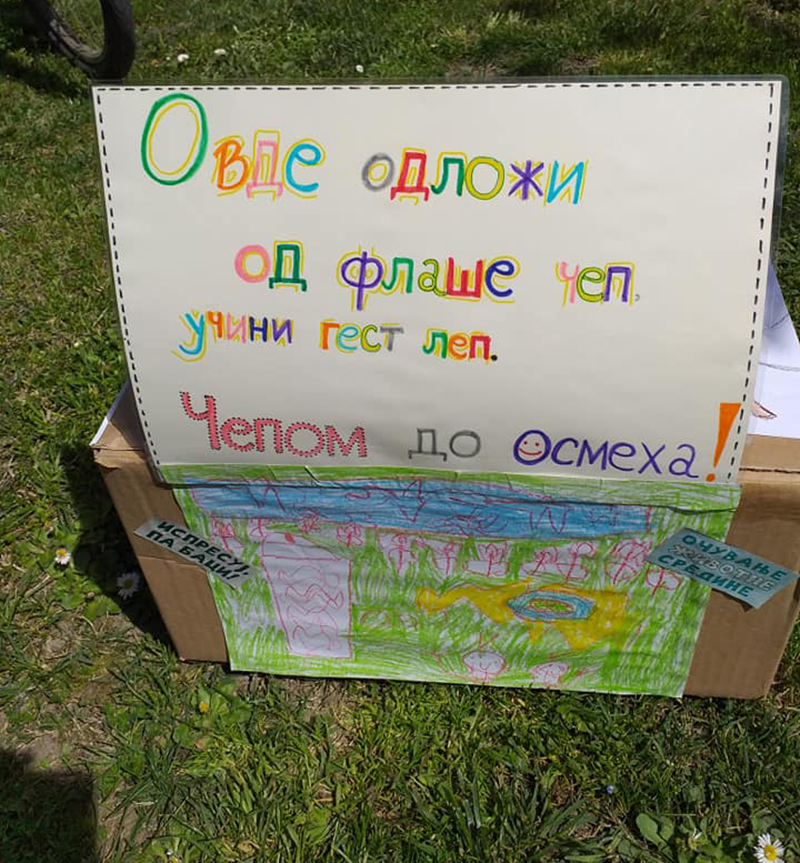 Овде одложи
од флаше чеп,
учини гест леп.
Чепом до Осмеха!
ИСПРЕСУЈ,
ПА БАЦИ!
ОЧУВАЊЕ
ЖИВОТНЕ
СРЕДИНЕ